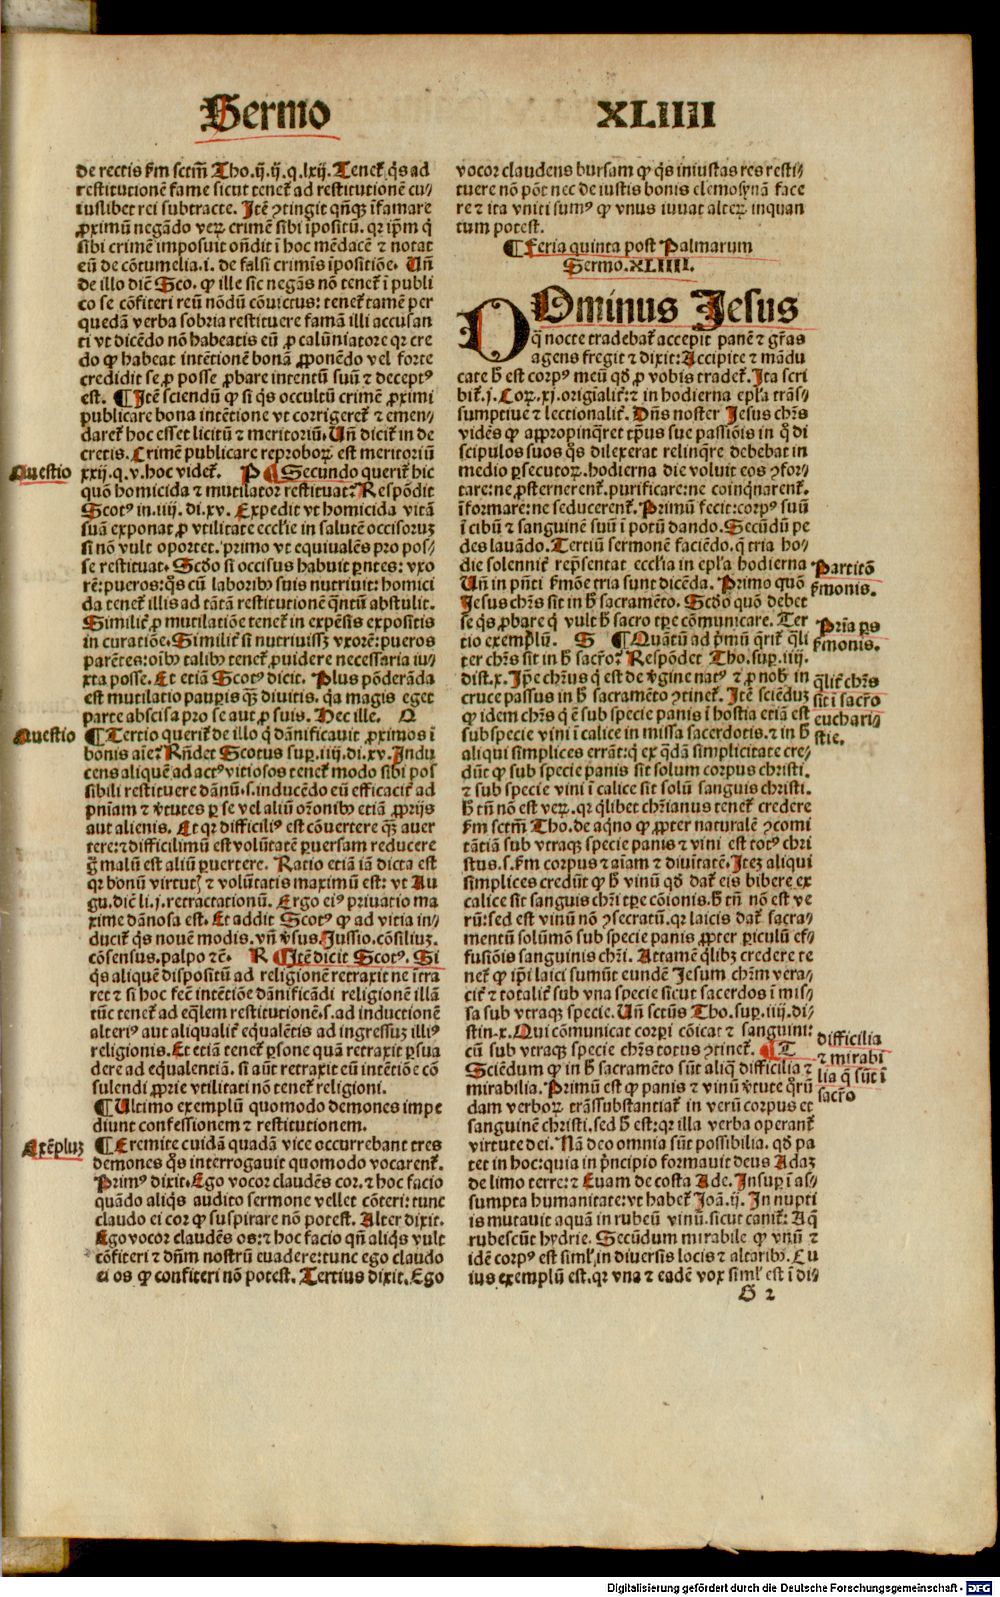 Sermo XLIIII
de rectis scḋm sctm̄ Tho.ij.ij.q.lxij. Tenet᷑ q̄s ad
restitutionē fame sicut tenet᷑ ad restitutionē cu/
iuslibet rei subtracte. Itē ↄtingit qn̄q; īfamare
ꝓximū negādo veꝝ crimē sibi īpositū. qꝛ ip̄m q̄
sibi crimē imposuit on̄dit ī hoc mēdacē ⁊ notat
eū de cōtumelia .i. de falsi crimīs īpositiōe. Un̄
de illo dicē Sco. ꝙ ille sic negās nō tenet᷑ ī publi
co se cōfiteri reū nōdū cōuictus: tenet᷑ tamē per
quedā verba sobria restituere famā illi accusan
ti vt dicēdo nō habeatis eū ꝓ calūniatore qꝛ cre
do ꝙ habeat intētionē bonā ꝓponēdo vel forte
credidit se ꝓ posse ꝓbare intentū suū ⁊ deceptꝰ
est. ¶ Itē sciendū ꝙ si q̄s occultū crimē ꝓximi
publicare bona intētione vt corrigeret᷑ ⁊ emen/
daret᷑ hoc esset licitū ⁊ meritoriū. Un̄ dicit᷑ in de
cretis. Crimē publicare reproboꝝ est meritoriū
Questio
xxij.q.v.hoc videt᷑. P ¶ Secundo querit᷑ hic
quō homicida ⁊ mutilator restituat? Respōdit
Scotꝰ in.iiij.di.xv. Expedit vt homicida vitā
suā exponat ꝓ vtilitate eccl'ie in salutē occisoruꝫ
si nō vult oportet. primo vt equiualēs pro pos/
se restituat. Scḋo si occisus habuit p̄ntes: vxo
rē: pueros: q̄s cū laboribꝰ suis nutriuit: homici
da tenet᷑ illis ad tātā restitutionē q̄ntū abstulit.
Similit᷑ ꝓ mutilatiōe tenet᷑ in expēsis expositis
in curatiōe. Similit᷑ si nutriuissꝫ vxorē: pueros
parētes: oībꝰ talibꝰ tenet᷑ ꝓuidere necessaria iu/
xta posse. Et etiā Scotꝰ dicit. Plus pōderāda
est mutilatio paupis qꝫ diuitis. q̄a magis eget
parte abscisa pro se aut ꝓ suis. Hec ille. Q
Questio
¶ Tertio querit᷑ de illo q̄ dānificauit ꝓximos ī
bonis aīe? Rn̄det Scotus suꝑ.iiij.di.xv. Indu
cens aliquē ad actꝰ vitiosos tenet᷑ modo sibi pos
sibili restituere dānū .s. inducēdo eū efficacit᷑ ad
pn̄iam ⁊ v̄tutes ꝑ se vel aliū or̄onibꝰ etiā ꝓprijs
aut alienis. Et qꝛ difficiliꝰ est cōuertere qꝫ auer
tere: ⁊ difficilimū est volūtatē ꝑuersam reducere
ḡ malū est aliū ꝑuertere. Ratio etiā iā dicta est
qꝛ bonū virtutꝭ ⁊ volūtatis maximū est: vt Au
gu. dicē li.j. retractationū. Ergo eiꝰ priuatio ma
xime dānosa est. Et addit Scotꝰ ꝙ ad vitia in/
ducit᷑ q̄s nouē modis. vn̄ v̄sus. Jussio. cōsiliuꝫ.
cōsensus. palpo ⁊c̄. R ¶ Itē dicit Scotꝰ. Si
q̄s aliquē dispositū ad religionē retraxit ne ītra
ret ⁊ si hoc fec̄ intētiōe dānificādi religionē illā
tūc tenet᷑ ad eq̄lem restitutionē .s. ad inductionē
alteriꝰ aut aliqualit᷑ eq̄ualētis ad ingressuꝫ illiꝰ
religionis. Et etiā tenet᷑ ꝑsone quā retraxit ꝑsua
dere ad eq̄ualentiā. si aūt retraxit eū intētiōe cō
sulendi ꝓprie vtilitati nō tenet᷑ religioni.
¶ Ultimo exemplū quomodo demones impe
diunt confessionem ⁊ restitutionem.
Exēpluꝫ
¶ Eremite cuidā quadā vice occurrebant tres
demones q̄s interrogauit quomodo vocarent᷑.
Primꝰ dixit. Ego vocor claudēs cor. ⁊ hoc facio
quādo aliq̄s audito sermone vellet cōteri: tunc
claudo ei cor ꝙ suspirare nō potest. Alter dixit.
Ego vocor claudēs os: ⁊ hoc facio qn̄ aliq̄s vult
cōfiteri ⁊ dn̄m nostrū euadere: tunc ego claudo
ei os ꝙ confiteri nō potest. Tertius dixit. Ego
vocor claudens bursam ꝙ q̄s iniustas res resti/
tuere nō pōt nec de iustis bonis elemosynā face
re ⁊ ita vniti sumꝰ ꝙ vnus iuuat alteꝝ inquan
tum potest.
¶ Feria quinta post Palmarum
Sermo.XLIIII.
DOminus Jesus
q̄ nocte tradebat᷑ accepit panē ⁊ gr̄as
agens fregit ⁊ dixit: Accipite ⁊ mādu
cate h̄ est corpꝰ meū qḋ ꝓ vobis tradet᷑. Ita scri
bit᷑.j.Coꝝ.xj.origīalit᷑: ⁊ in hodierna epl'a trās/
sumptiue ⁊ lectionalit᷑. Dn̄s noster Jesus chr̄s
vidēs ꝙ appropinq̄ret tp̄us sue passiōis in q̄ di
scipulos suos q̄s dilexerat relinq̄re debebat in
medio ꝑsecutoꝝ. hodierna die voluit eos ↄfor/
tare: ne ꝓsternerent᷑. purificare: ne coinq̄narent᷑.
īformare: ne seducerent᷑. Primū fecit: corpꝰ suū
ī cibū ⁊ sanguinē suū ī potū dando. Secūdū pe
des lauādo. Tertiū sermonē faciēdo. q̄ tria ho/
die solennit᷑ rep̄sentat eccl'ia in epl'a hodierna
Partitō s̄monis.
Un̄ in p̄nti s̄mōe tria sunt dicēda. Primo quō
Jesus chr̄s sit in h̄ sacramēto. Scḋo quō debet
se q̄s ꝓbare q̄ vult h̄ sacro tp̄e cōmunicare. Ter
Pr̄ia ꝑs s̄monis.
tio exemplū. S ¶ Quātū ad p̄mū q̄rit᷑ q̄li
ter chr̄s sit in h̄ sacr̄o? Respōdet Tho.suꝑ.iiij.
q̄lit᷑ chr̄s sit ī sacr̄o eucharistie.
dist.x. Ip̄e chr̄us q̄ est de v̄gīne natꝰ ⁊ ꝓ nob̄ in
cruce passus in h̄ sacramēto ↄtinet᷑. Itē sciēduꝫ
ꝙ idem chr̄s q̄ ē sub specie panis ī hostia etiā est
sub specie vini ī calice in missa sacerdotis. ⁊ in h̄
aliqui simplices errāt: q̄ ex q̄dā simplicitate cre/
dūt ꝙ sub specie panis sit solum corpus christi.
⁊ sub specie vini ī calice sit solū sanguis christi.
h̄ tn̄ nō est veꝝ. qꝛ q̄libet chr̄ianus tenet᷑ credere
scḋm sctm̄ Tho. de aq̄no ꝙ ꝓpter naturalē ↄcomi
tātiā sub vtraqꝫ specie panis ⁊ vini est totꝰ chri
stus .s. scḋm corpus ⁊ aīam ⁊ diuītatē. Iteꝫ aliqui
simplices credūt ꝙ h̄ vinū qḋ dat᷑ eis bibere ex
calice sit sanguis chr̄i tp̄e cōionis. h̄ tn̄ nō est ve
rū: sed est vinū nō ↄsecratū. qꝛ laicis dat᷑ sacra/
mentū solūmō sub specie panis ꝓpter ꝑiculū ef/
fusiōis sanguinis chr̄i. Attamē q̄libꝫ credere te
net᷑ ꝙ ip̄i laici sumūt eundē Jesum chr̄m vera/
cit᷑ ⁊ totalit᷑ sub vna specie sicut sacerdos ī mis/
sa sub vtraqꝫ specie. Un̄ sctūs Tho.suꝑ.iiij.di/
stin.x. Qui cōmunicat corpri cōicat ⁊ sanguini:
cū sub vtraqꝫ specie chr̄s totus ↄtinet᷑. ¶ T
difficilia ⁊ mirabilia q̄ sūt ī sacr̄o
Sciēdum ꝙ in h̄ sacramēto sūt aliq̄ difficilia ⁊
mirabilia. Primū est ꝙ panis ⁊ vinū v̄tute q̄rū
dam verboꝝ trāssubstantiat᷑ in verū corpus et
sanguinē christi. sed h̄ est: qꝛ illa verba operant᷑
virtute dei. Nā deo omnia sūt possibilia. qḋ pa
tet in hoc: quia in p̄ncipio formauit deus Adaꝫ
de limo terre: ⁊ Euam de costa Ade. Insuꝑ ī as/
sumpta humanitate: vt habet᷑ Joā.ij. In nupti
is mutauit aquā in rubeū vinū. sicut canit᷑: Aq̄
rubescūt hydrie. Secūdum mirabile ꝙ vnū ⁊
idē corpꝰ est siml' in diuersis locis ⁊ altaribꝰ. Cu
ius exemplū est. qꝛ vna ⁊ eadē vox siml' est ī di/
S 2
Digitalisierung gefördert durch die Deutsche Forschungsgemeinschaft - DFG